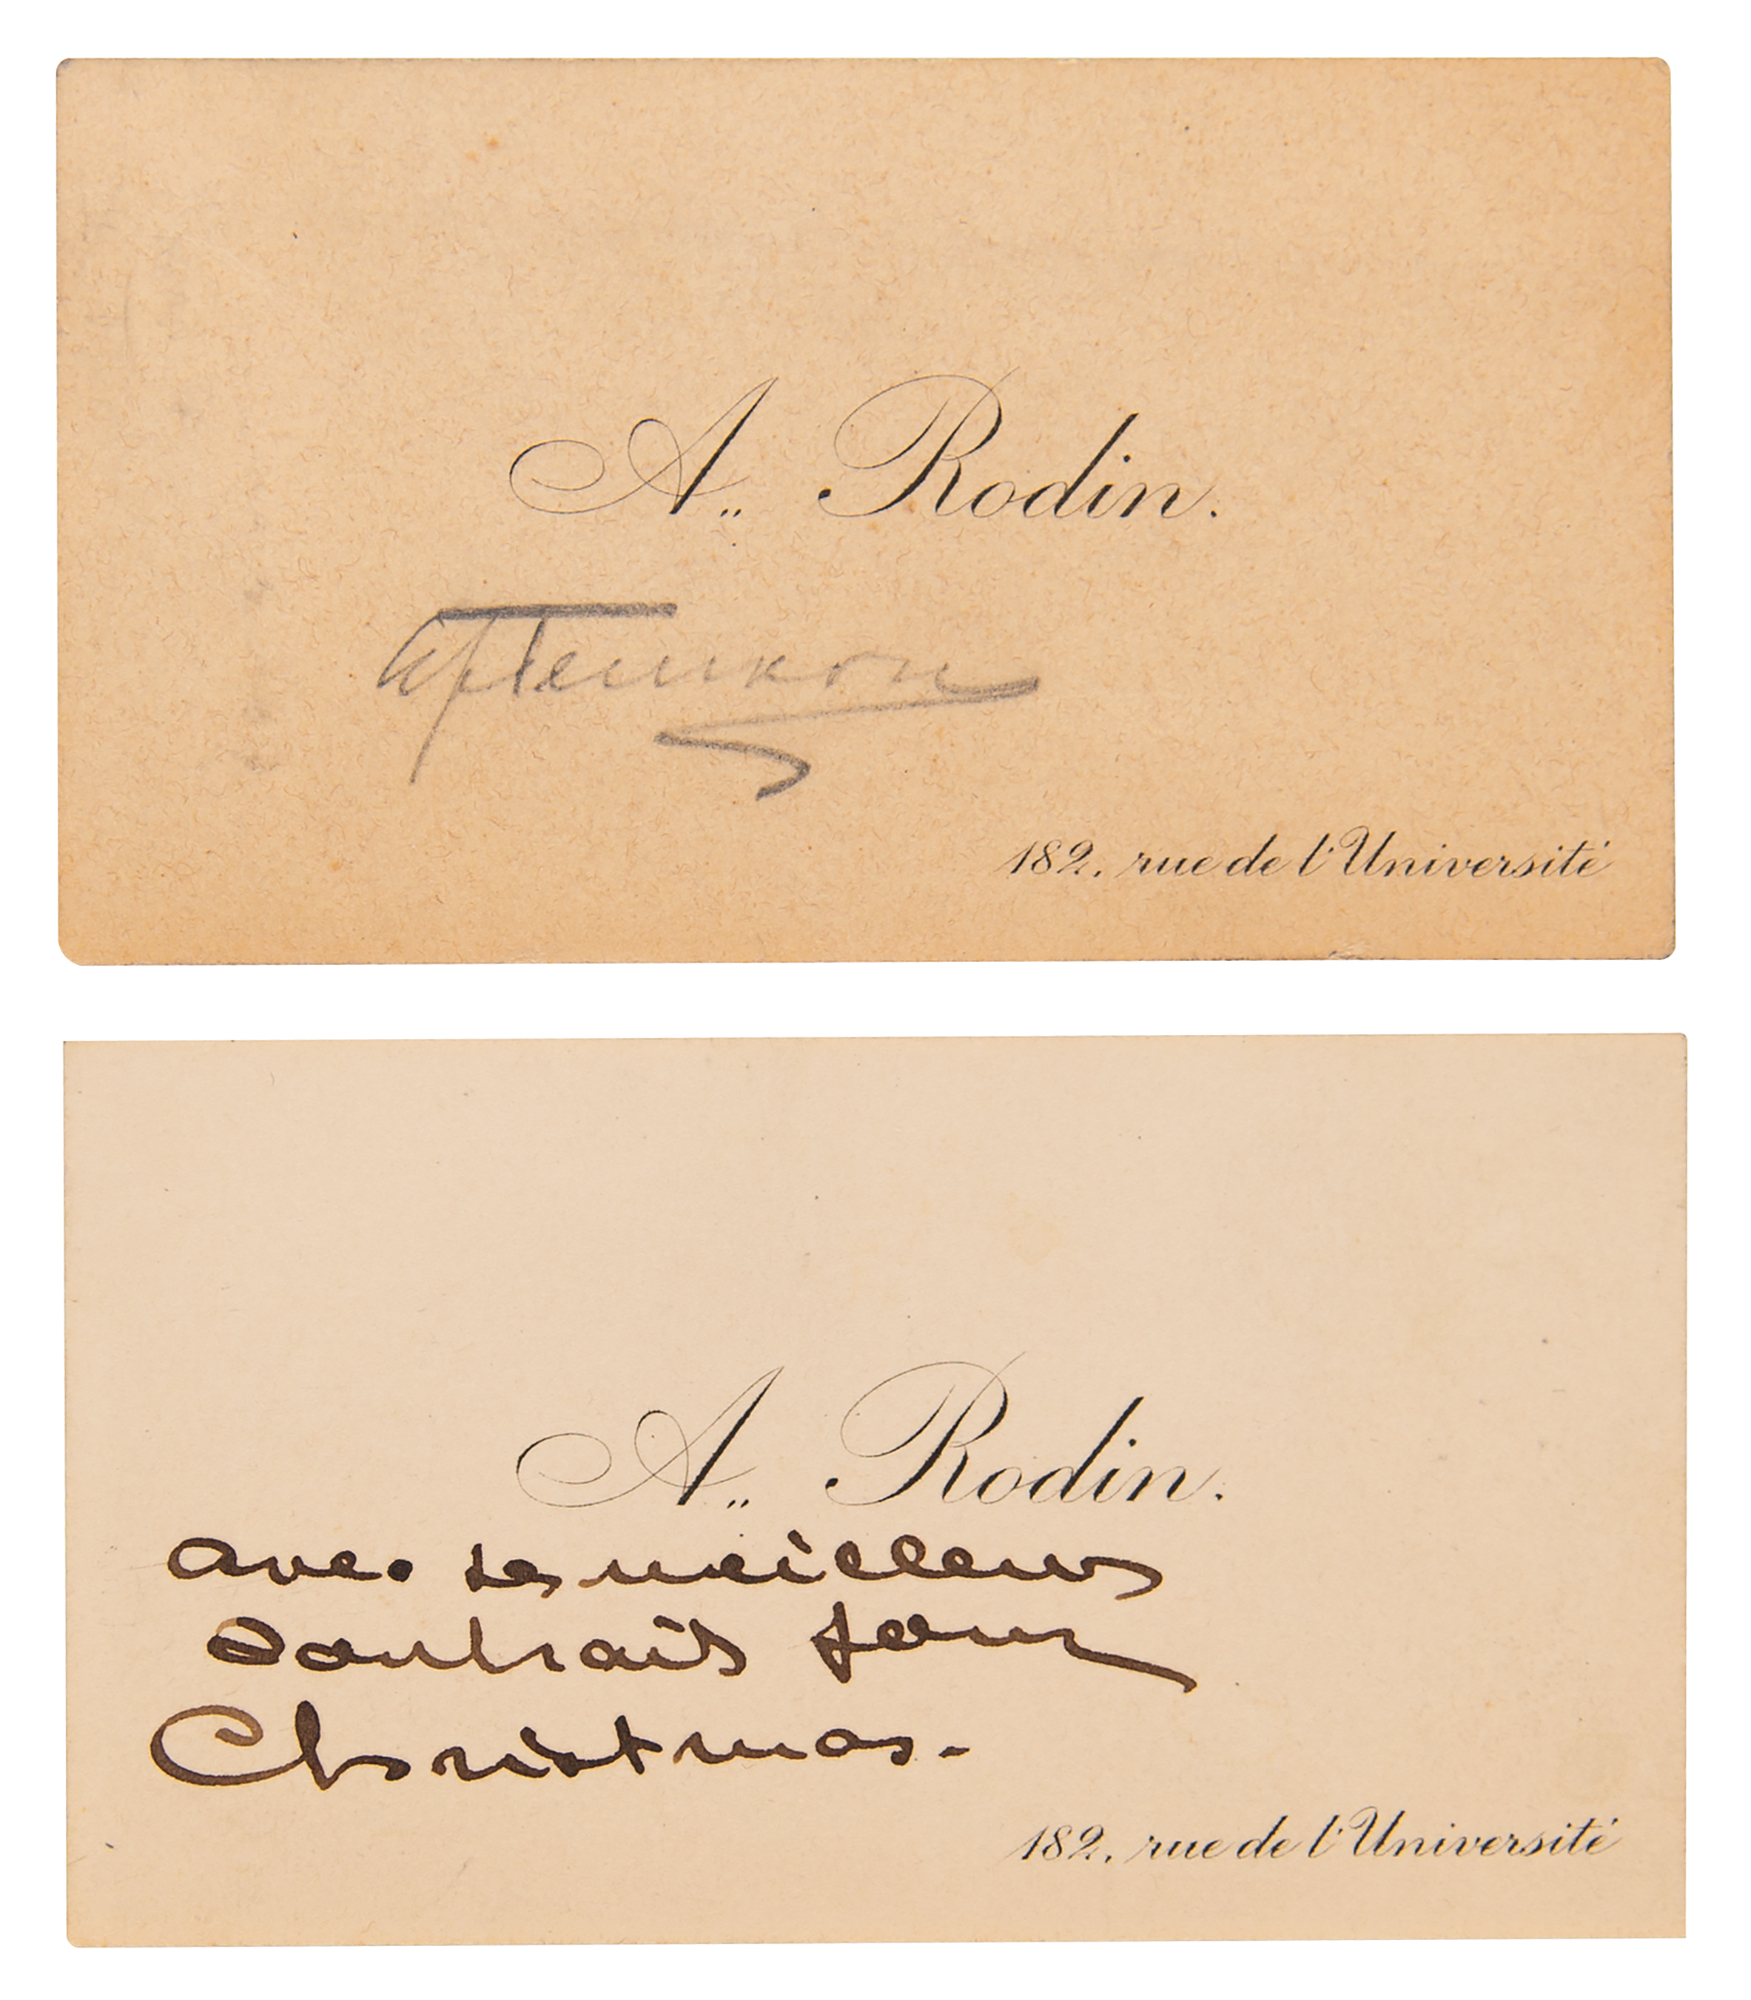 A. Rodin.
182, rue de l'Université
A. Rodin.
avec ses meilleurs
souhaits pour
Christmas.
182, rue de l'Université